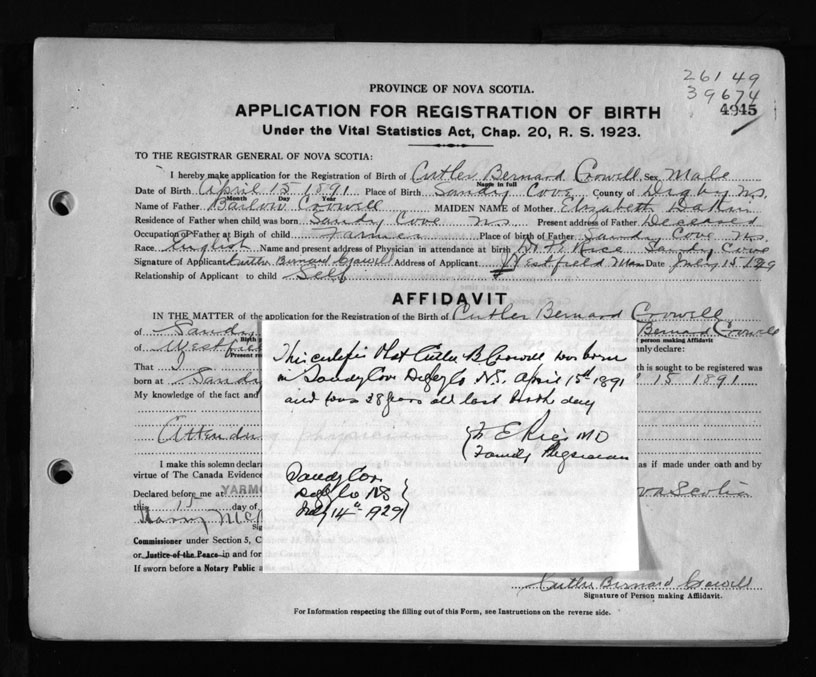 26149
39674
4945
PROVINCE OF NOVA SCOTIA.
APPLICATION FOR REGISTRATION OF BIRTH
Under the Vital Statistics Act, Chap. 20, R. S. 1923.
TO THE REGISTRAR GENERAL OF NOVA SCOTIA:
I hereby make application for the Registration of Birth of Cutler Bernard Crowell Sex Male
Name in full
Date of Birth April 15 1891 Place of Birth Sandy Cove County of Digby N.S.
Month Day Year
Name of Father Barlow Crowell MAIDEN NAME of Mother Elizabeth Dakin
Residence of Father when child was born Sandy Cove N.S. Present address of Father Deceased
Occupation of Father at Birth of child Farmer Place of birth of Father Sandy Cove N.S.
Race English Name and present address of Physician in attendance at birth Dr. F. E. Rice Sandy Cove
Signature of Applicant Cutler Bernard Crowell Address of Applicant Westfield Mass Date July 15 1929
Relationship of Applicant to child Self
AFFIDAVIT
IN THE MATTER of the application for the Registration of the Birth of Cutler Bernard Crowell
of Sandy Bernard Crowell
Birth p person making Affidavit
of Westfield nly declare:
Present re
That I th is sought to be registered was
born at Sandy 15 1891
My knowledge of the fact and
Attending Physician
I make this solemn declara as if made under oath and by
virtue of The Canada Evidence
Declared before me at YARMOU Nova Scotia
this 15 day of
Harry McK
Sig
Commissioner under Section 5, C
or Justice of the Peace in and for
If sworn before a Notary Public a
This certifies that Cutler B Crowell was born
in Sandy Cove Digby Co N.S. April 15th 1891
and was 38 years old last birth day
F E Rice MD
Family Physician
Sandy Cove
Digby Co NS
July 14th 1929
Cutler Bernard Crowell
Signature of Person making Affidavit.
For Information respecting the filling out of this Form, see Instructions on the reverse side.